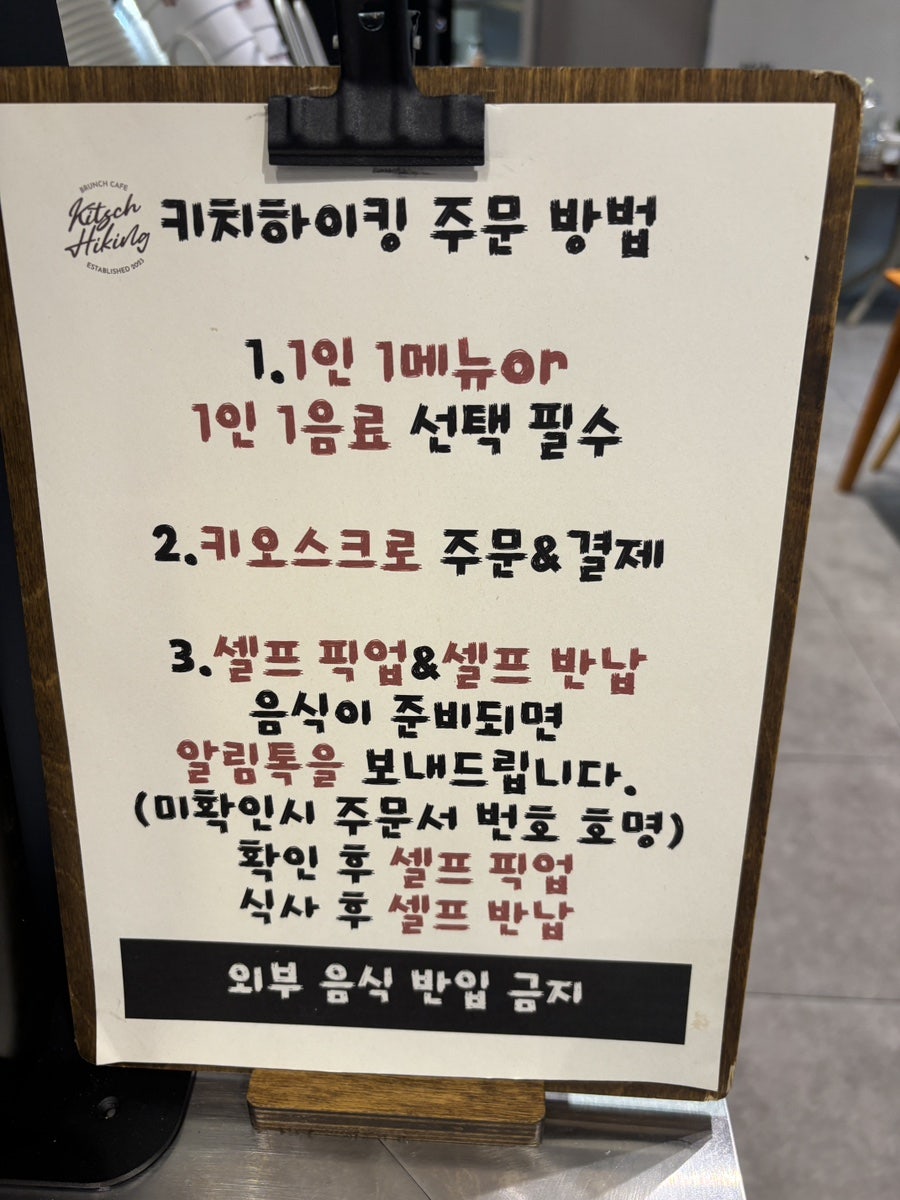 BRUNCH CAFE
Kitsch
Hiking
ESTABLISHED 2023
키치하이킹 주문 방법
1.1인 1메뉴or
1인 1음료 선택 필수
2.키오스크로 주문&결제
3.셀프 픽업&셀프 반납
음식이 준비되면
알림톡을 보내드립니다.
(미확인시 주문서 번호 호명)
확인 후 셀프 픽업
식사 후 셀프 반납
외부 음식 반입 금지